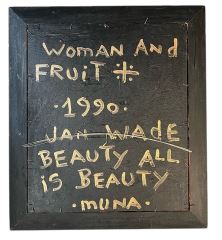 WOMAN AND
FRUIT
·1990·
JAN WADE
BEAUTY ALL
iS BEAUTY
·MUNA·